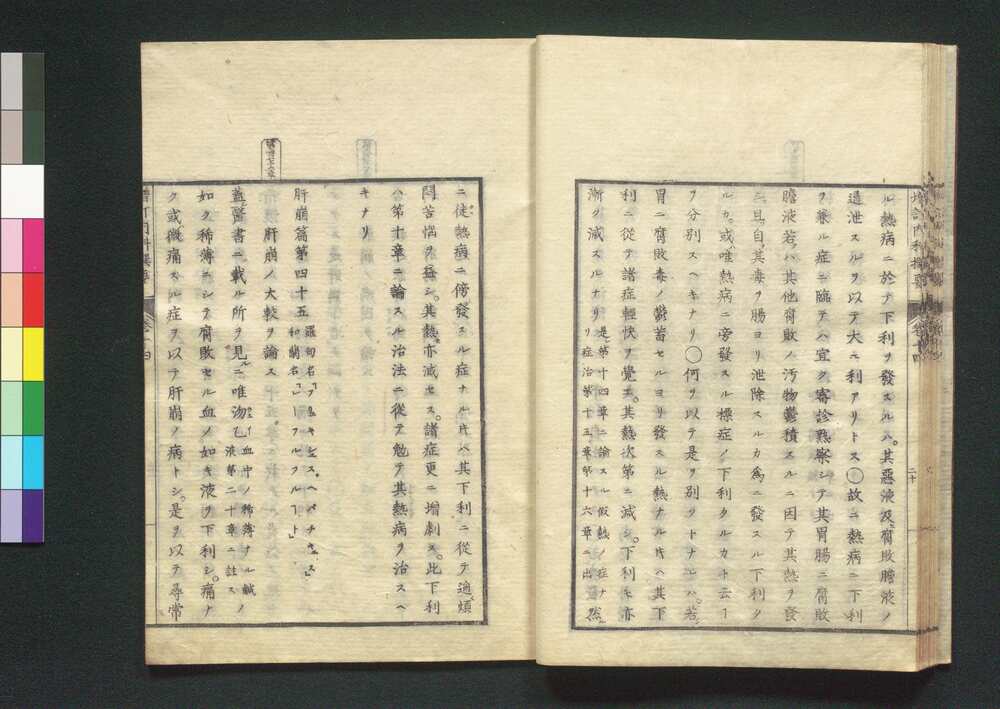 増訂内科撰要 巻十四 二十
ル熱病ニ於テ下利ヲ發スルハ。其惡液及腐敗膽液ノ
遺泄スルヲ以テ大ニ利アリトス〇故ニ熱病ニ下利
ヲ兼ル症ニ臨テハ宜ク審診熟察シテ其胃腸ニ腐敗
膽液若クハ其他腐敗ノ汚物鬱積スルニ因テ其熱ヲ發
シ。且自ラ其毒ヲ腸ヨリ泄除スルカ為ニ發スル下利タ
ルカ。或ハ唯熱病ニ旁發スル標症ノ下利タルカト云ヿ
ヲ分別スヘキナリ〇何ヲ以テ是ヲ別タトナレハ。若
胃ニ腐敗毒ノ鬱蓄セルヨリ發スル熱ナル片ハ其下
利ニ從テ諸症輕快ヲ覺エ。其熱次第ニ減シ。下利モ亦
漸ク減スルナリ 是第十四章ニ論スル假熱ノ症ナリ然
症治第十五章第十六章ニ出
ニ徒熱病ニ傍發スル症ナル片ハ其下利ニ從テ適煩
悶苦惱ヲ益シ。其熱亦減セス。諸症更ニ増劇ス。此下利
ハ第十章ニ論スル治法ニ從テ勉テ其熱病ヲ治スヘ
キナリ
肝崩篇第四十五 羅甸名「フリュキシュス。ヘパチキュス」
和蘭名「レーフルフルード」
第百七十六章
肝崩ノ大較ヲ論ス
蓋醫書ニ載ル所ヲ見ルニ唯沕乙 血中ノ稀薄ナル鹹ノ
液第二十章ニ註ス
如ク稀薄ニシテ腐敗セル血ノ如キ液ヲ下利シ。痛ナ
ク或ハ微痛スル症ヲ以テ肝崩ノ病トシ。是ヲ以テ尋常
増訂内科撰要 巻十四